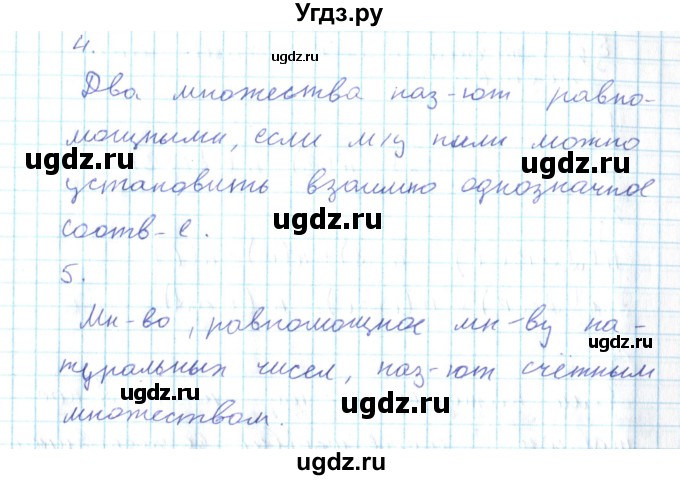 Угдз.ру
4.
ugdz.ru
ugdz.ru
Два множества наз-ют равно-
мощными, если м/у ними можно
ugdz.ru
ugdz.ru
установить взаимно однозначное
ugdz.ru
соотв-е.
5.
Мн-во, равномощное мн-ву на-
ugdz.ru
туральных чисел, наз-ют счётным
ugdz.ru
ugdz.ru
множеством.
ugdz.ru